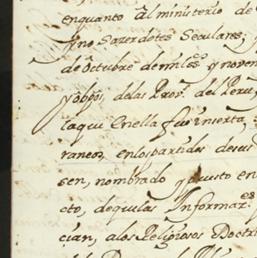 enquanto al ministerio de
y no Sacerdotes Seculares; y
de Octubre de mil e y noven
y obpos, delas Prov.s del Peru
laqui en ella fue inserta,
raneos, en los partidos desus
sen, nombrado y puesto en
cto, de que las Informar
cian, a los Religiosos Doctri